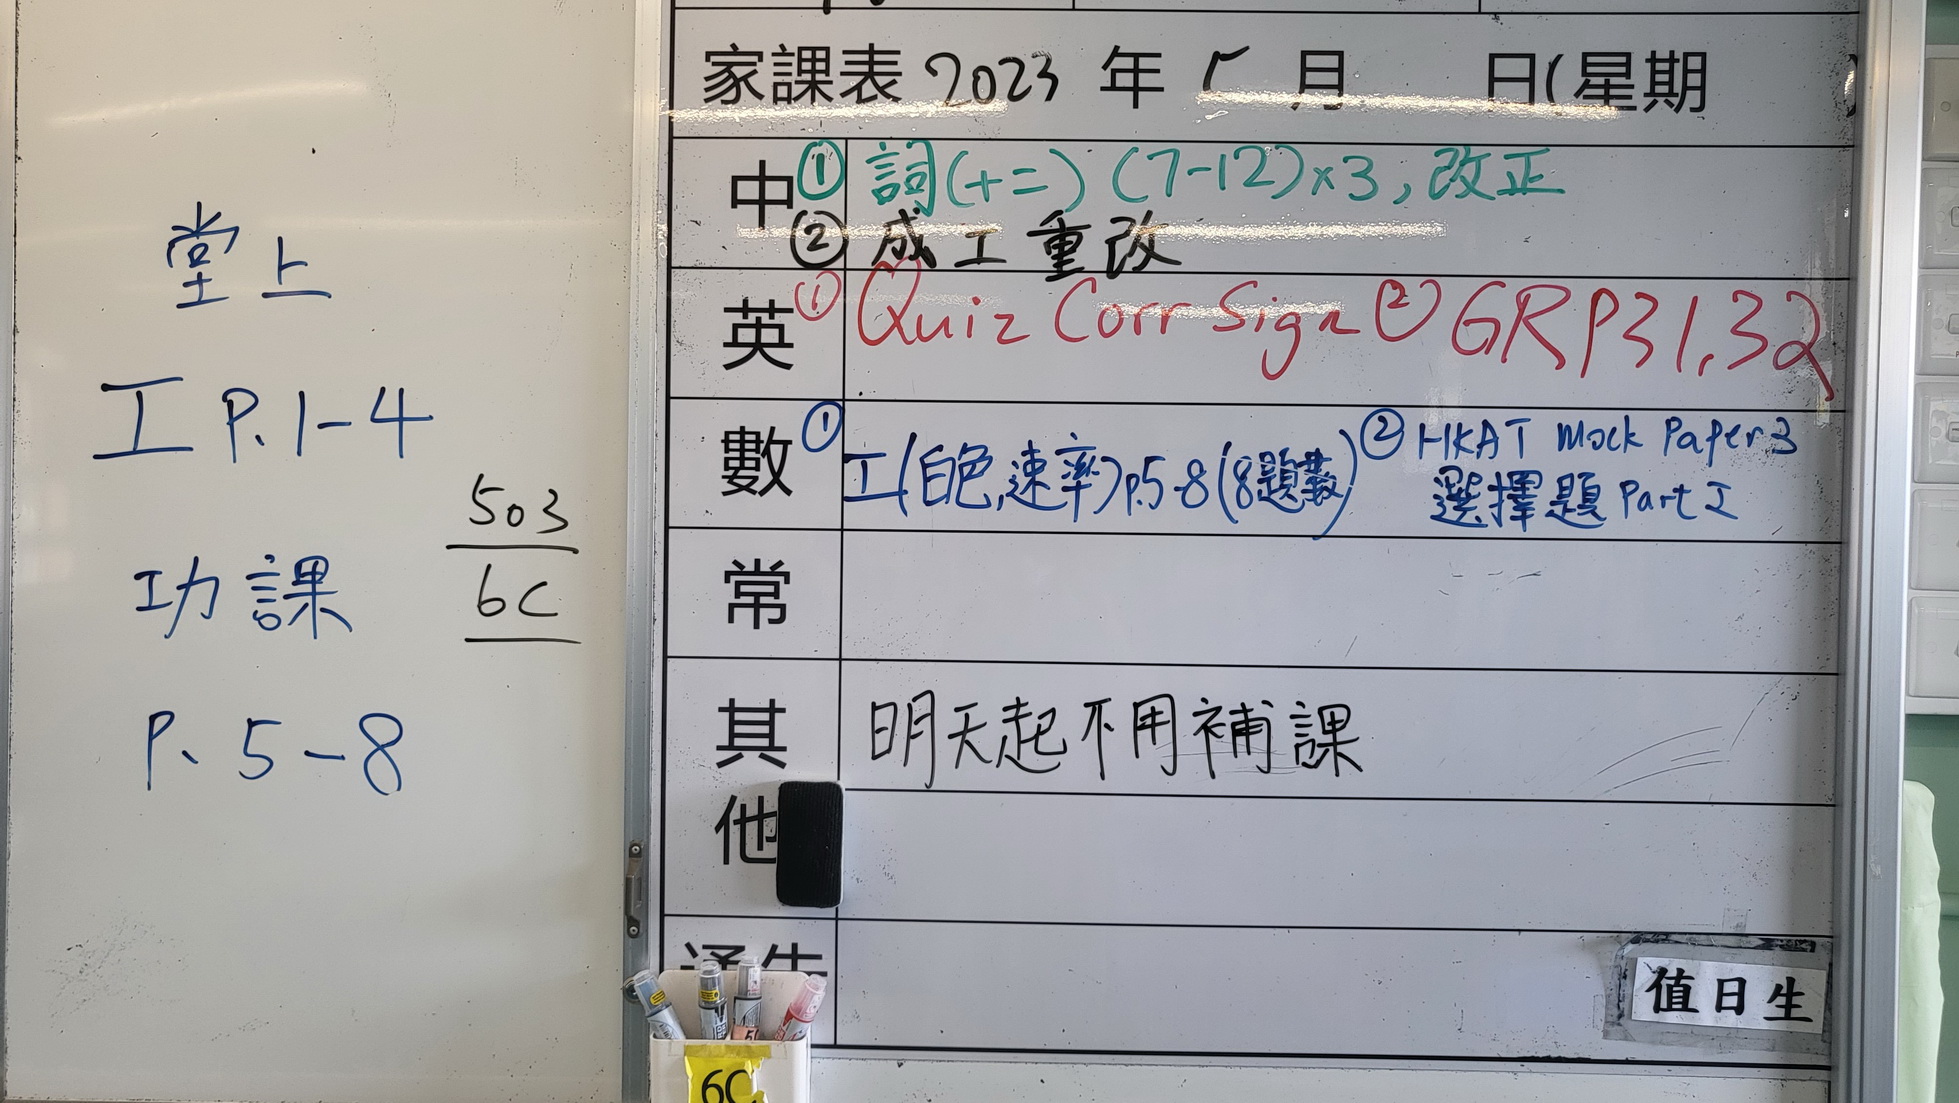 堂上
工 P.1-4
功課
P. 5-8
503
6C
家課表 2023 年 5 月 日(星期 )
中 ① 詞(十二) (7-12)x3, 改正
② 成工重改
英 ① Quiz Corr Sign ② GRP31,32
數 ① 工(白色,速率)p.5-8(8題數) ② HKAT Mock Paper 3
選擇題 Part I
常
其他 明天起不用補課
通告
值日生
6C